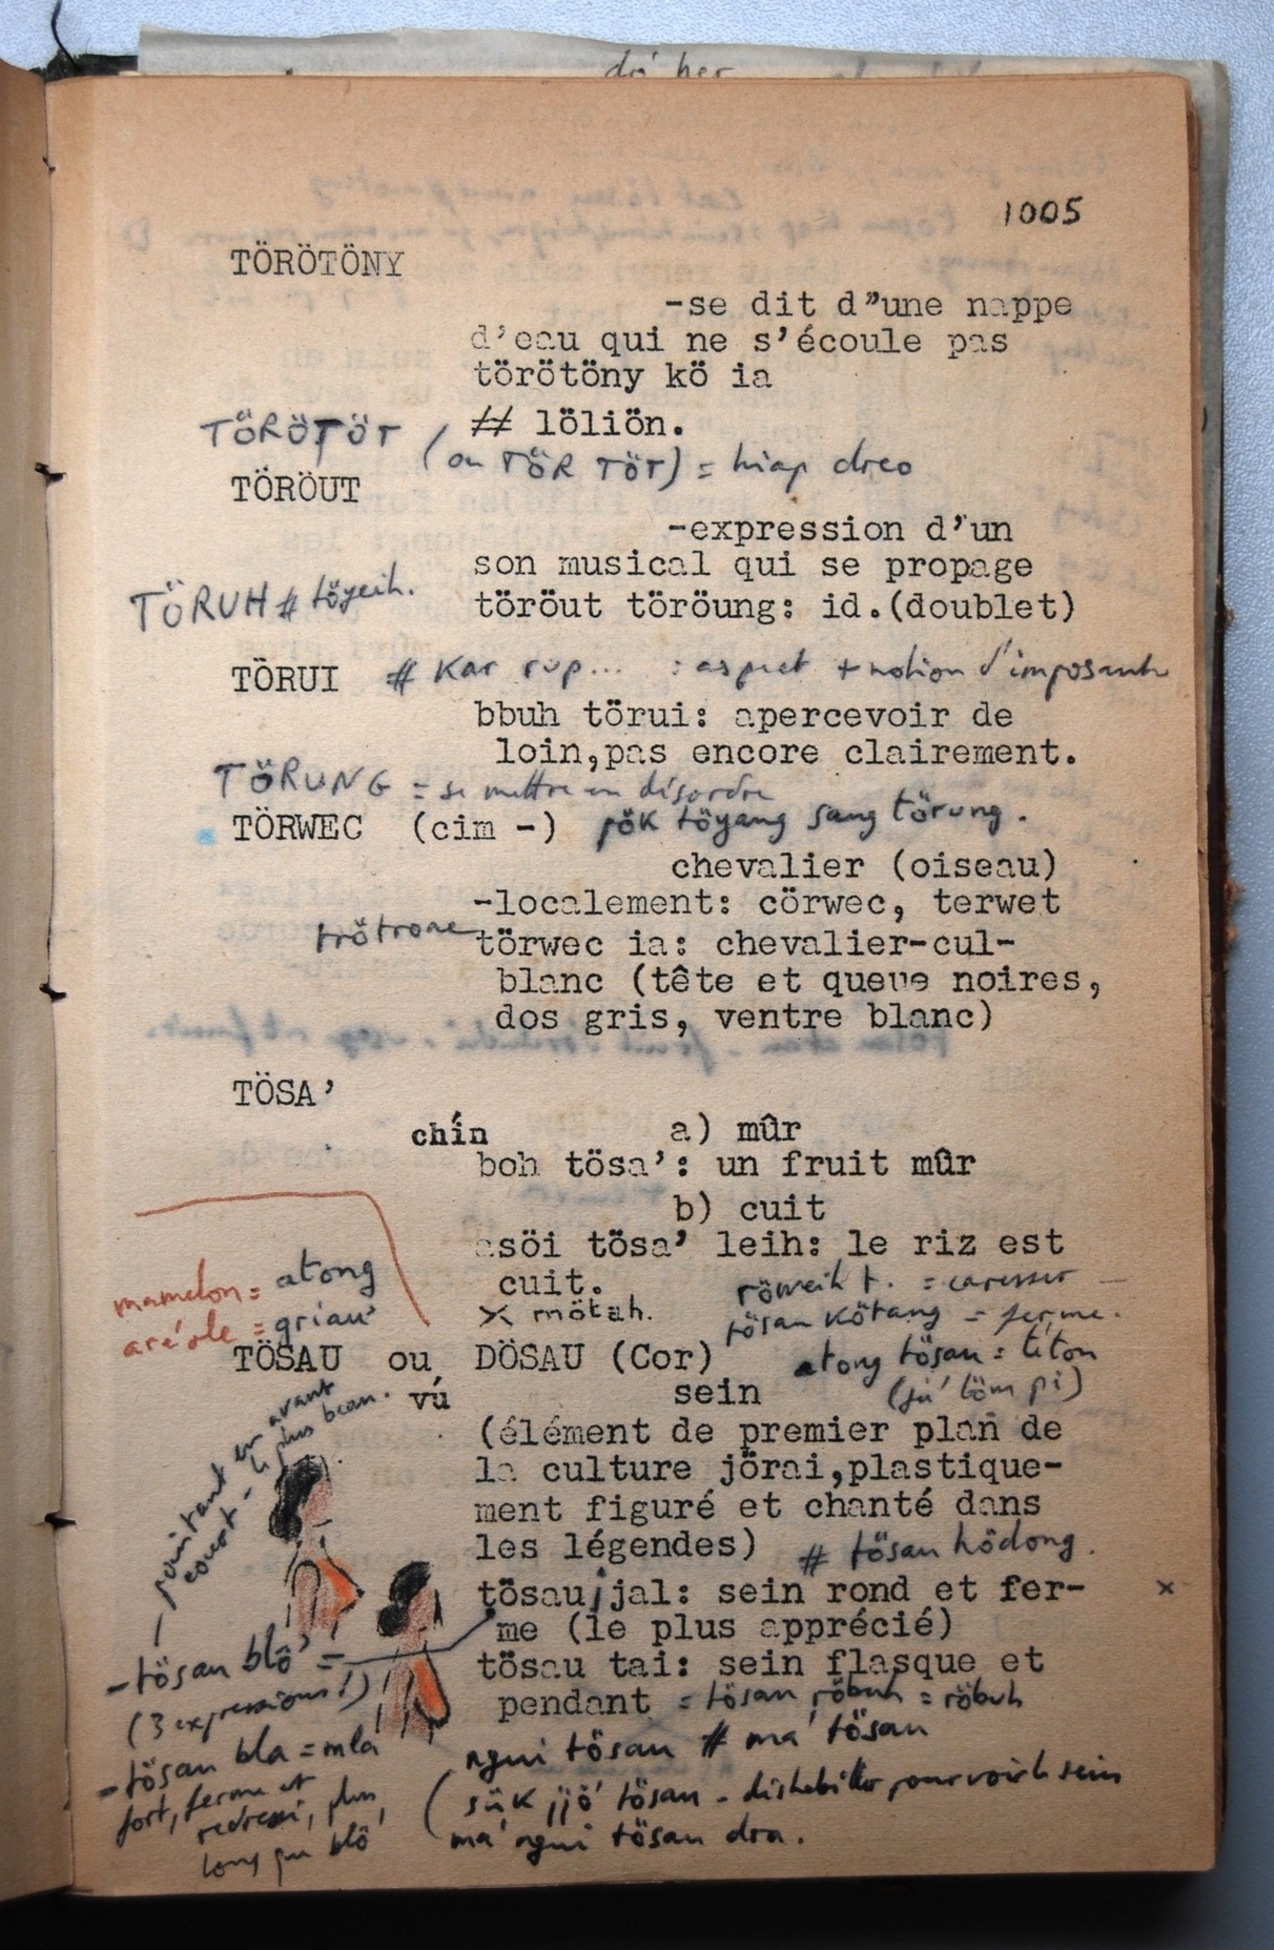 1005
TÖRÖTÖNY
-se dit d"une nappe
d'eau qui ne s'écoule pas
törötöny kö ia
# löliön.
TÖRÖTÖT (ou TÖR TÖT) = hiap dreo
TÖRÖUT
-expression d'un
son musical qui se propage
töröut töröung: id.(doublet)
TÖRUH # töyeih.
TÖRUI # Kar rup... : aspect + notion d'imposante
bbuh törui: apercevoir de
loin,pas encore clairement.
TÖRUNG = se mettre en désordre
pök töyang sang törung.
TÖRWEC (cim -)
chevalier (oiseau)
-localement: cörwec, terwet
trötrone
törwec ia: chevalier-cul-
blanc (tête et queue noires,
dos gris, ventre blanc)
TÖSA'
chín a) mûr
boh tösa': un fruit mûr
b) cuit
asöi tösa' leih: le riz est
cuit.
>< mötah.
röweih t. = caresser
tösau kötang = ferme.
atong tösau = téton
(jú töm pi)
mamelon = atong
aréole = griau'
TÖSAU ou DÖSAU (Cor)
vú sein
(élément de premier plan de
la culture jörai,plastique-
ment figuré et chanté dans
les légendes) # tösau hödong.
tösau jal: sein rond et fer- x
me (le plus apprécié)
tösau tai: sein flasque et
pendant = tösau röbuh = röbuh
ngui tösau # ma' tösau
(sŭk jjö' tösau - déshabiller pour voir le sein
ma' ngui tösau dra.
— pointant en avant
court - le plus beau.
-tösau blô' =
(3 expressions !)
-tösau bla = mla
fort, ferme et
redressé, plus
long que blô'